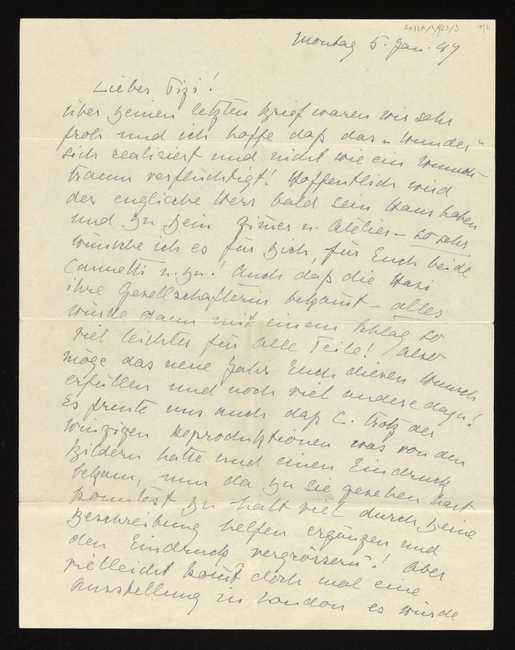 Montag 5. Jan. 49
Lieber Tizi!
Über Deinen letzten Brief waren wir sehr
froh und ich hoffe daß das „Wunder"
sich realisiert und nicht wie ein Wunsch-
traum verflüchtigt! Hoffentlich wird
der englische Herr bald sein Haus haben
und Du Dein Zimer u. Atelier – so sehr
wünsche ich es für Dich, für Euch beide
Cannetti u. Du! Auch daß die Mari
ihre Gesellschafterin bekomt – alles
würde dann mit einem Schlag so
viel leichter für alle Teile! Also
möge das neue Jahr Euch diesen Wunsch
erfüllen und noch viel andere dazu!
Es freute uns auch daß C. trotz der
winzigen Reproduktionen was von den
Bildern hatte und einen Eindruck
bekam, nun da Du sie gesehen hast
konntest Du halt viel durch Deine
Beschreibung helfen ergänzen und
den Eindruck „vergrössern"! Aber
vielleicht komt doch mal eine
Ausstellung in London es würde